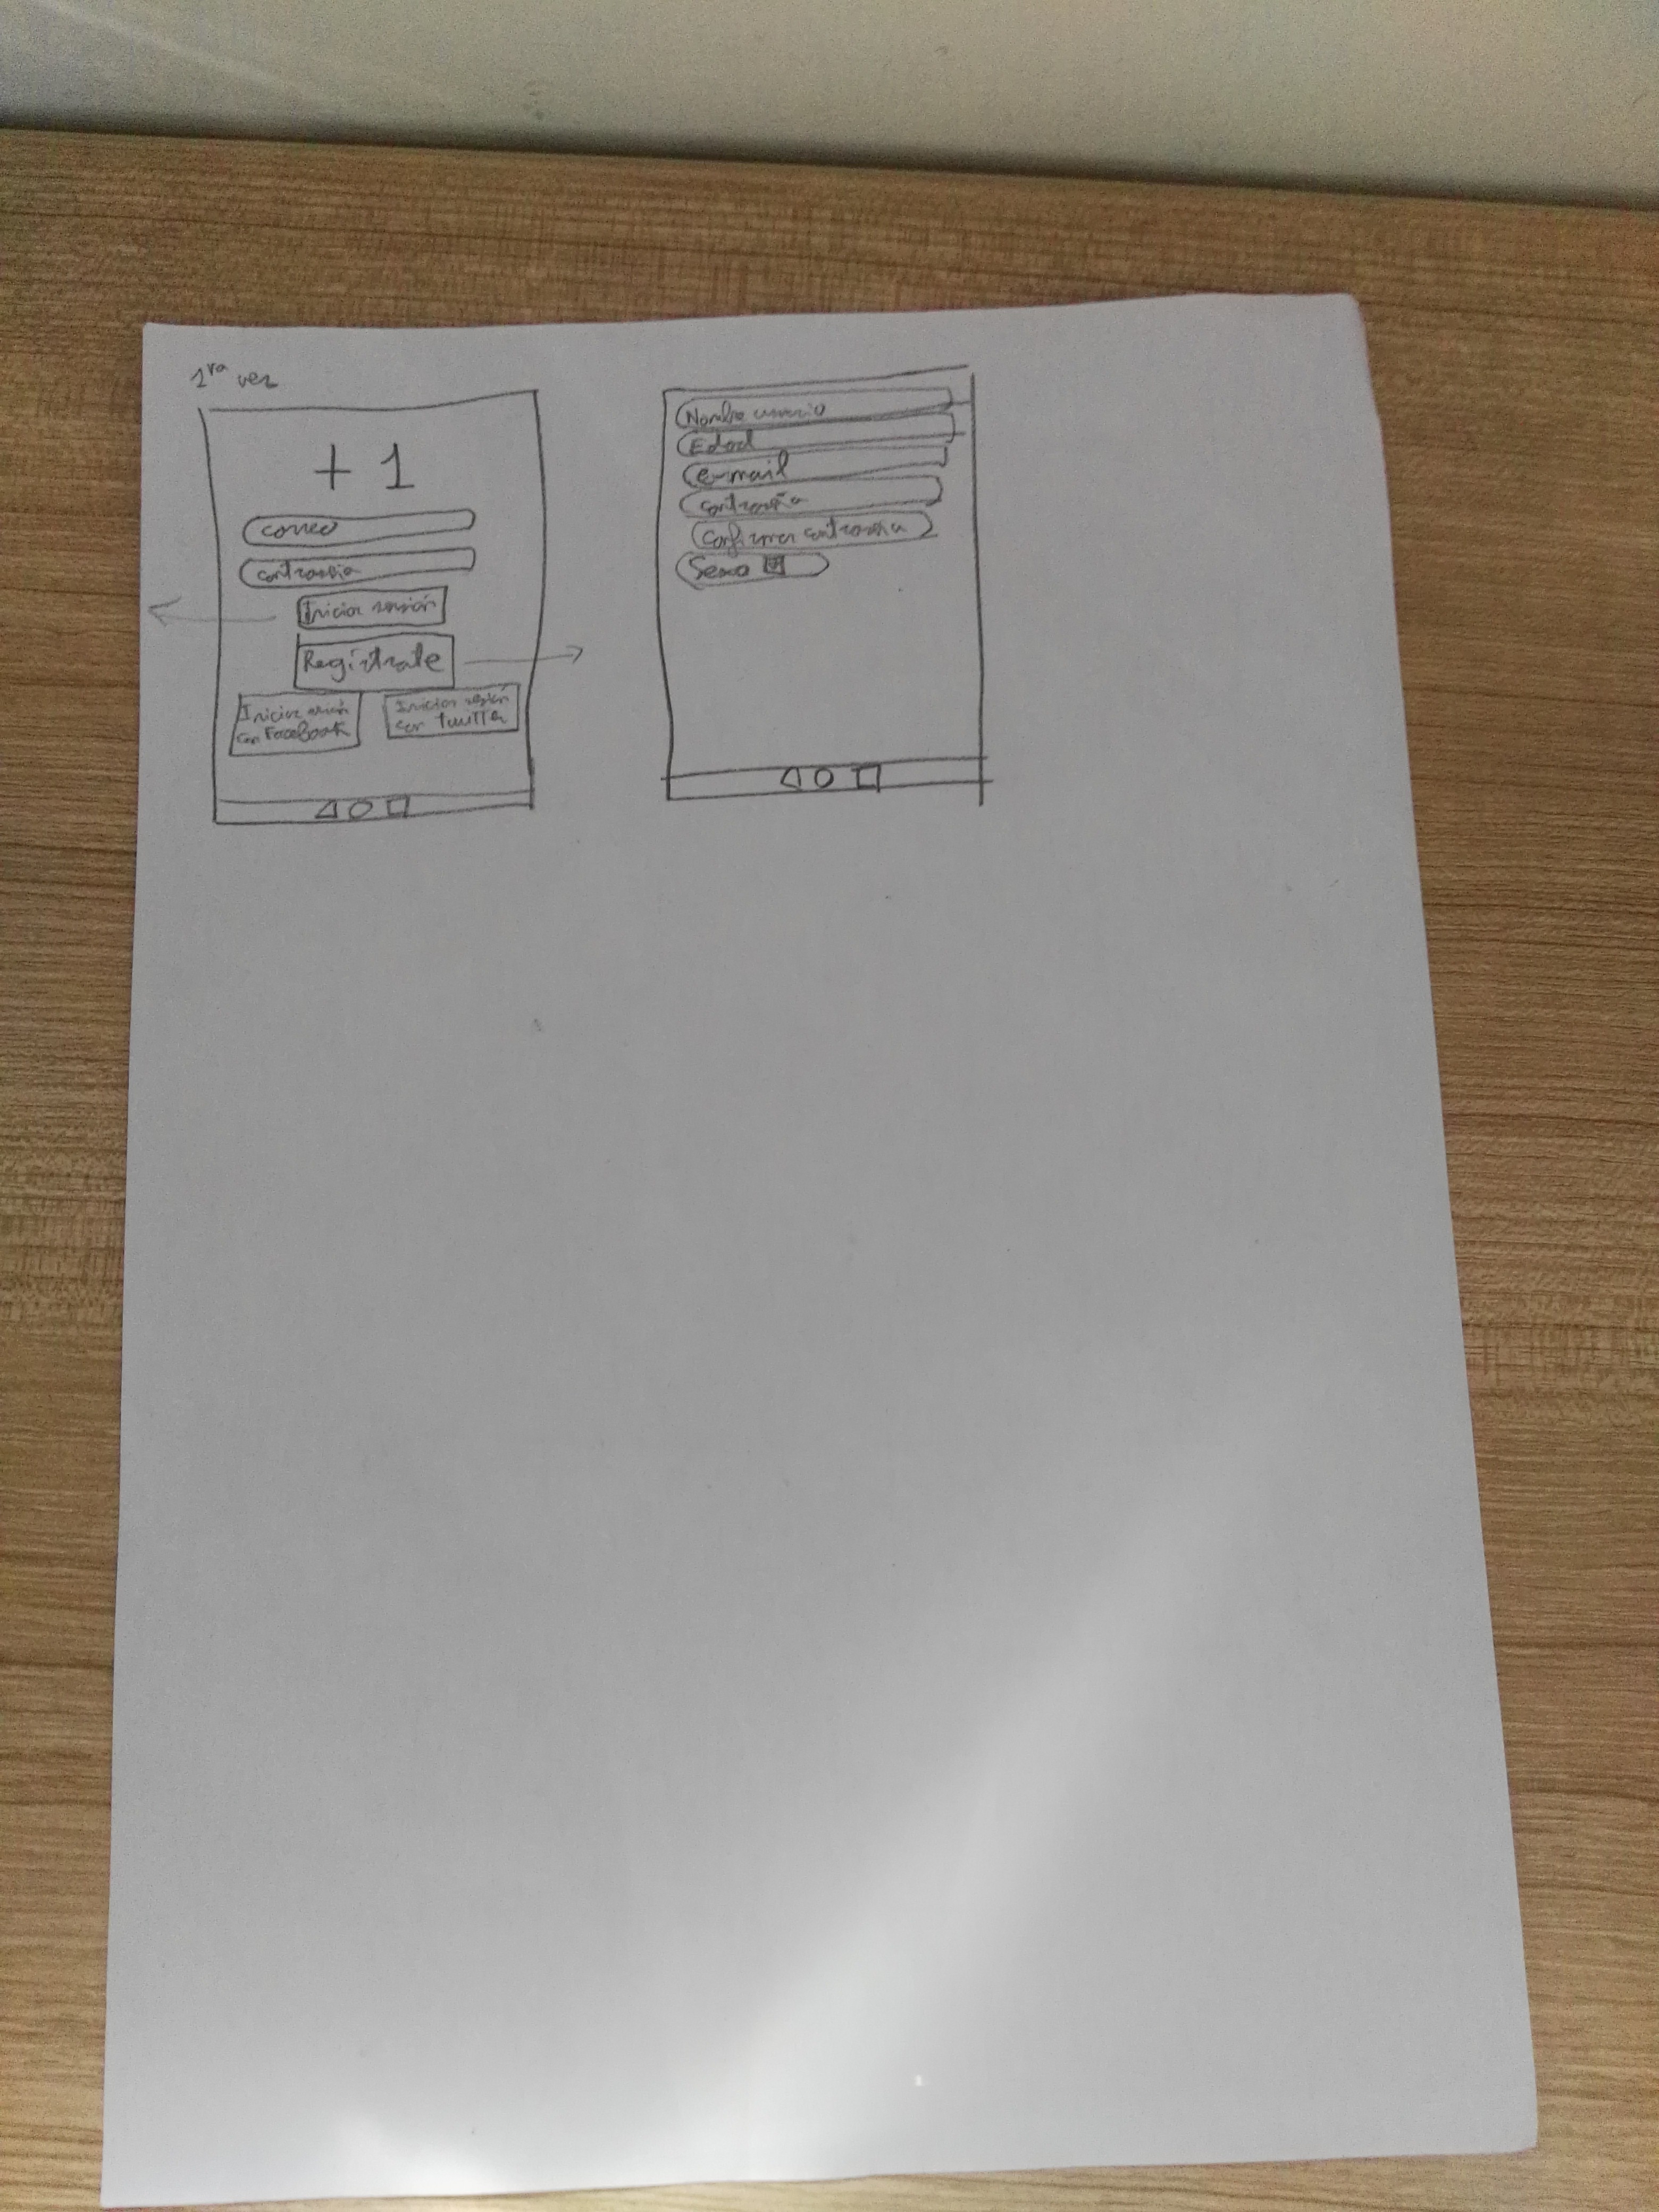 1ra vez
+ 1
correo
contraseña
Iniciar sesión
Regístrate
Iniciar sesión
con FaceBook
Iniciar sesión
con twitter
Nombre usuario
Edad
e-mail
contraseña
Confirmar contraseña
Sexo